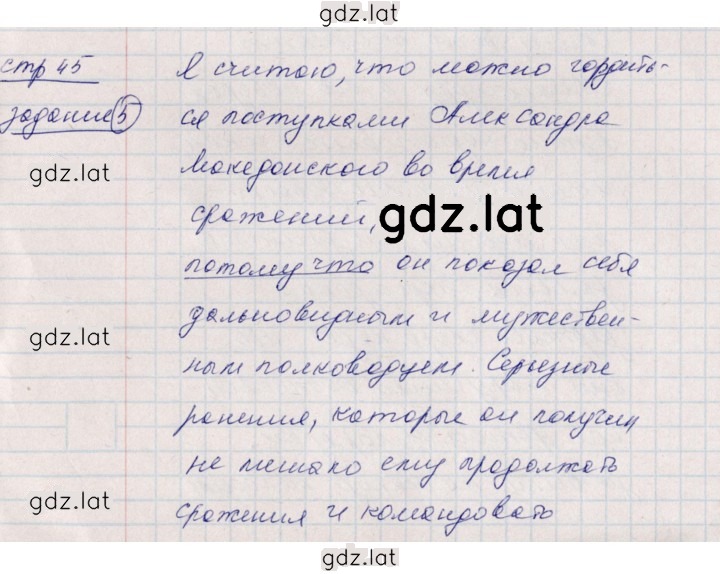 gdz.lat
стр 45
Я считаю, что можно гордить-
задание 5
ся поступками Александра
gdz.lat
Македонского во время
сражений,
gdz.lat
потому что он показал себя
gdz.lat
дальновидным и мужествен-
ным полководцем. Серьезные
ранения, которые он получил
не мешало ему продолжать
gdz.lat
сражения и командовать
gdz.lat